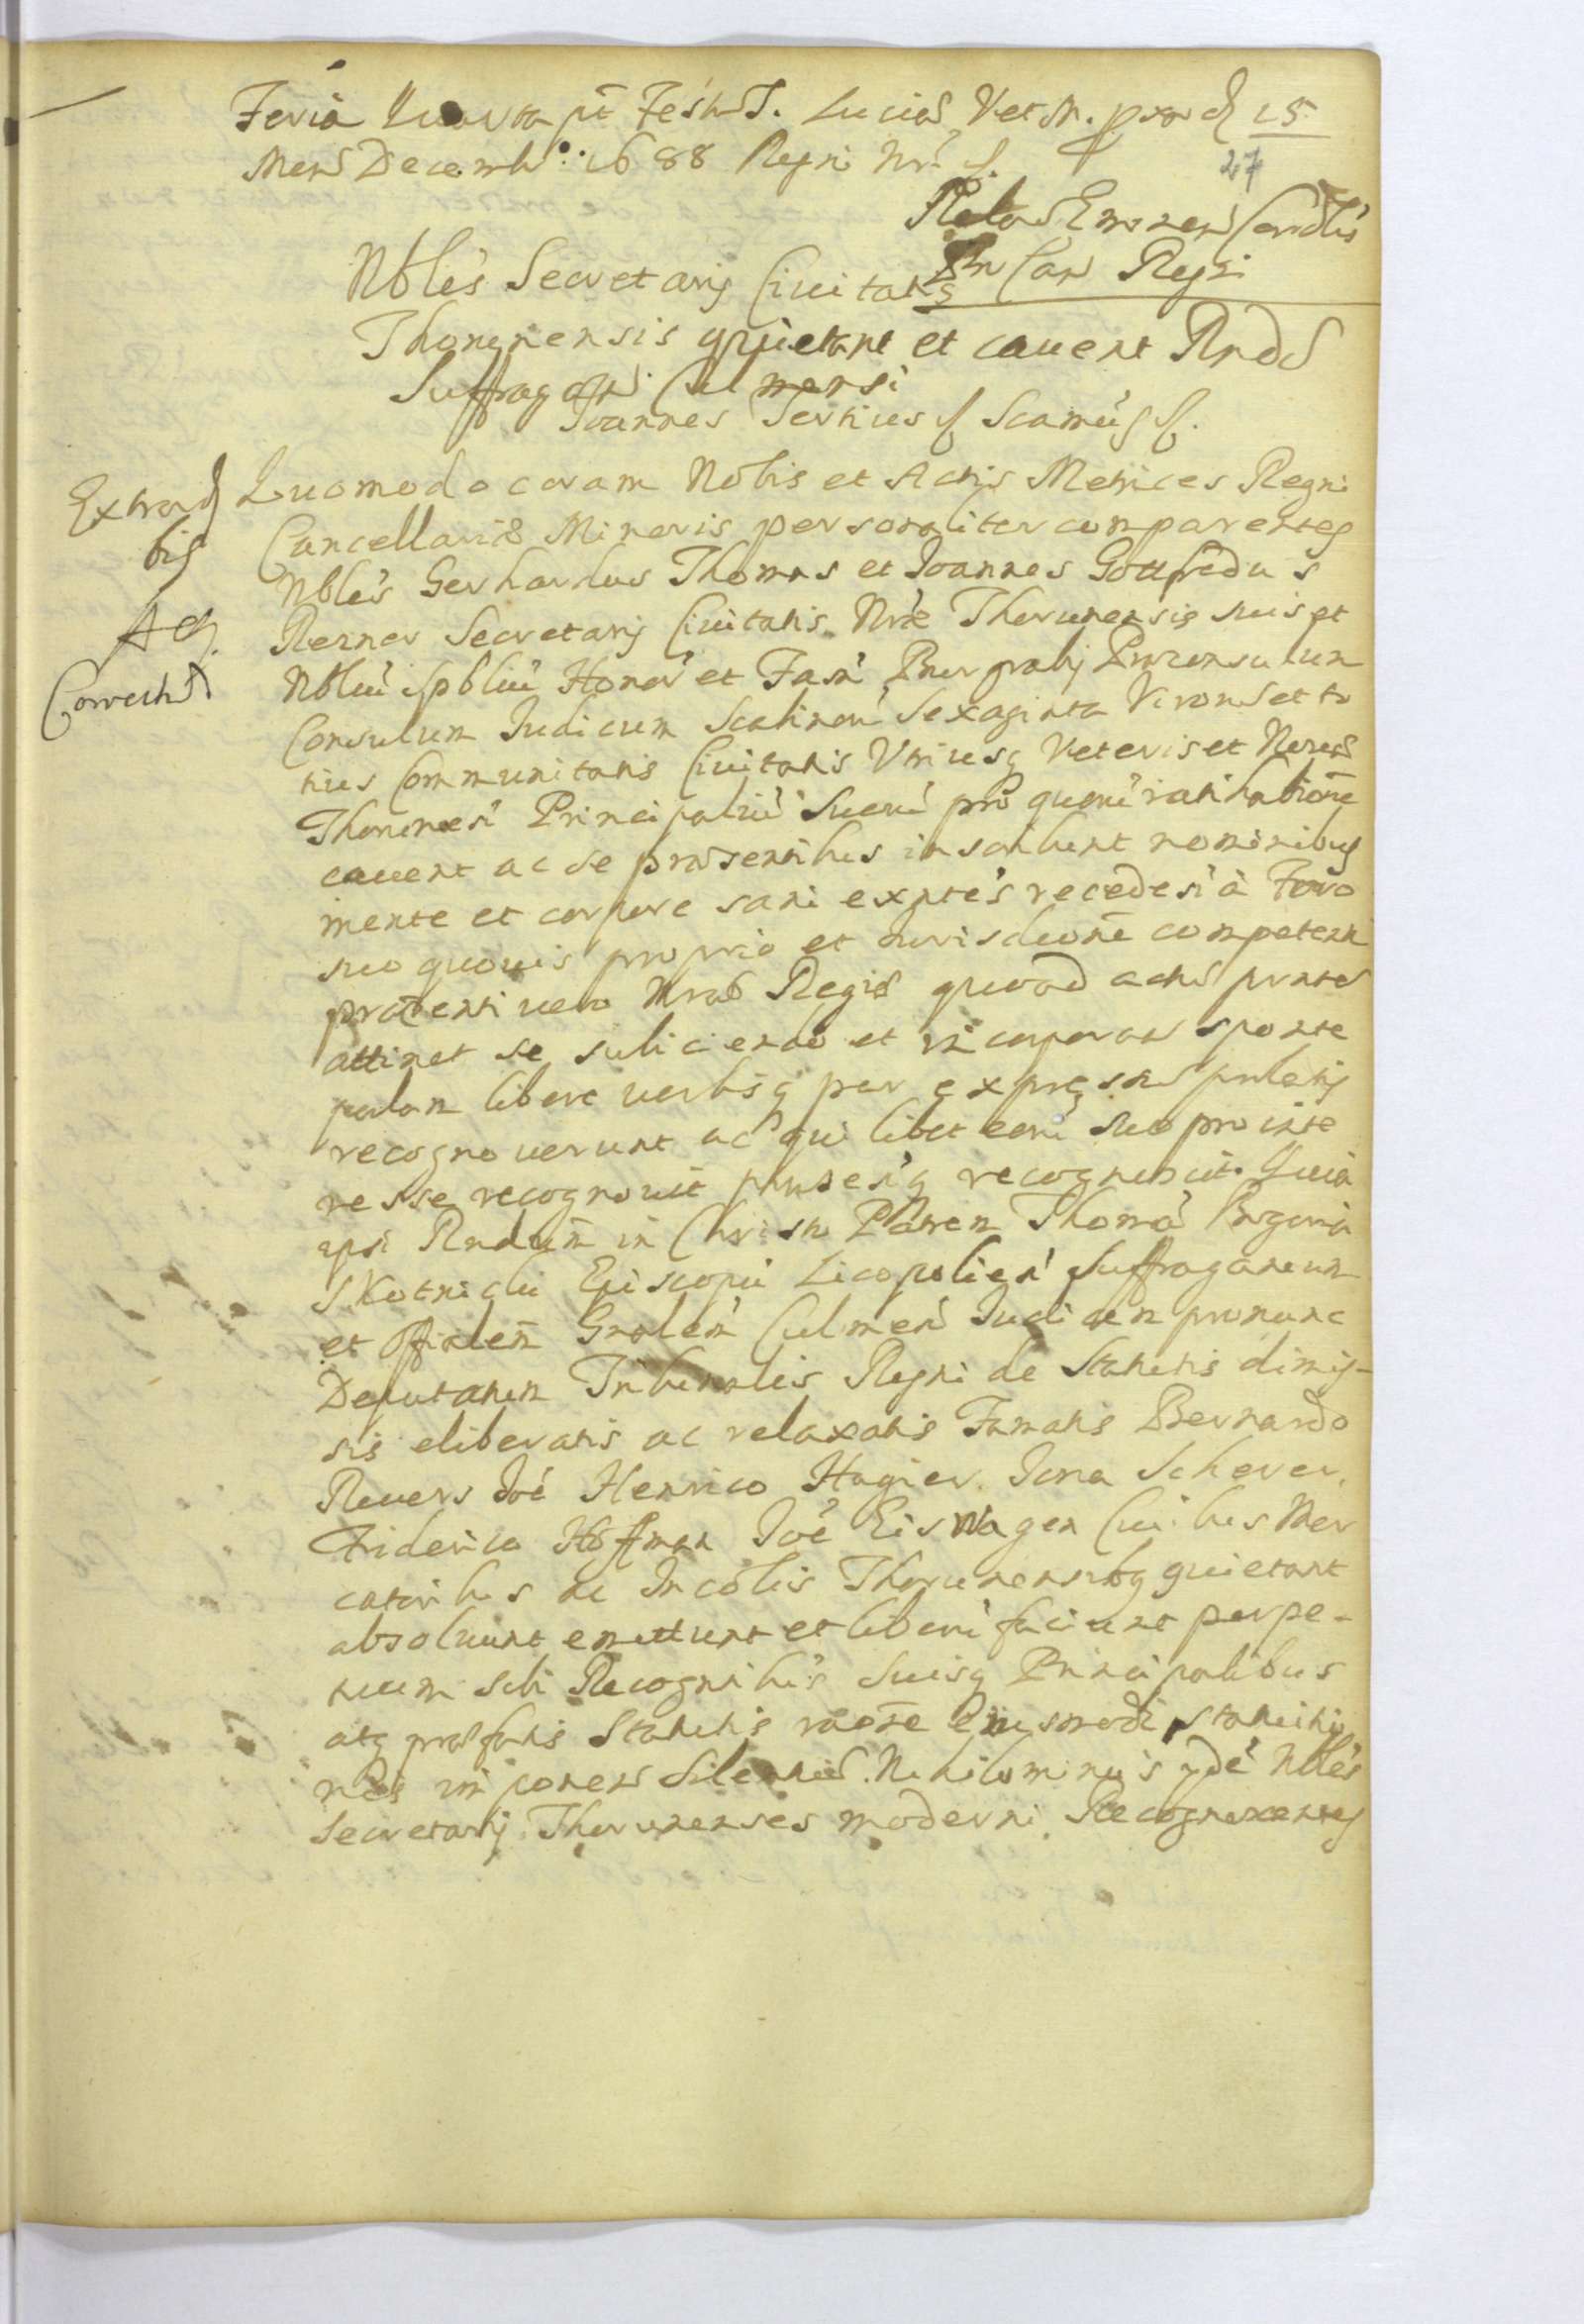 Feria Quarta pt Festu S. Luciæ Vet M. prox d 15
27
Mens Decemb: 1688 Regni Nri
Relat Eminen Cardlis
In Can Regni
Nbles Secretarij Ciuitatis
Thorunensis quietant et cauent Rndo
Suffragan Culmensi
Joannes Tertius Scamus
Extrad Quomodo coram Nobis et Actis Metrices Regni
bis Cancellariæ Minoris personaliter comparentes
Nbles Gerhardus Thomas et Joannes Gottfredus
Aq. Rezner Secretarij Ciuitatis Nræ Thorunensis suis et
Correcta Nbliu Spbliu Honor et Fam Burgrabij Proconsulum
Consulum Judicum Scabinoru Sexaginta Viror et to
tius Communitatis Ciuitatis Vtriusq Veteris et Nouæ
Thorunen Principaliu Suoru pro quoru ratihabitione
cauent ac se præsentibus inscribunt nominibus
mente et corpore sani exntes recedesi à Foro
suo quouis proprio et Jurisdcione competenti
præsenti vero Nræ Regiæ quoad actu prnte
attinet se subiciendo et incorporan sponte
palam libere verbisq per expressu prolatis
recognouerunt ac qui libet eoru suo pro inte
resse recognouit prnsesq recognoscit Quia
ipsi Rndum in Christo Patrem Thoma
Skotnicki Episcopu Licopolien Suffraganeum
et Offialem Gnalem Culmen Judicem pronunc
Deputatum Tribunalis Regni de Statutis dimis-
sis eliberatis ac relaxatis Famatis Bernardo
Reuers Joe Henrico Hagier Jona Scherer
Friderico Hoffman Joe Eiswagen Ciuibus Mer
catoribus ac Incolis Thorunensibq quietant
absoluunt emittunt et liberu faciunt perpe-
tuum sibi Recogntibus Suisq Principalibus
atq præfatis Statutis raone eiusmodi statuitio
nis imponen Silentiu. Nihilominus yde Nbles
Secretarij Thorunenses moderni Recognoscentes